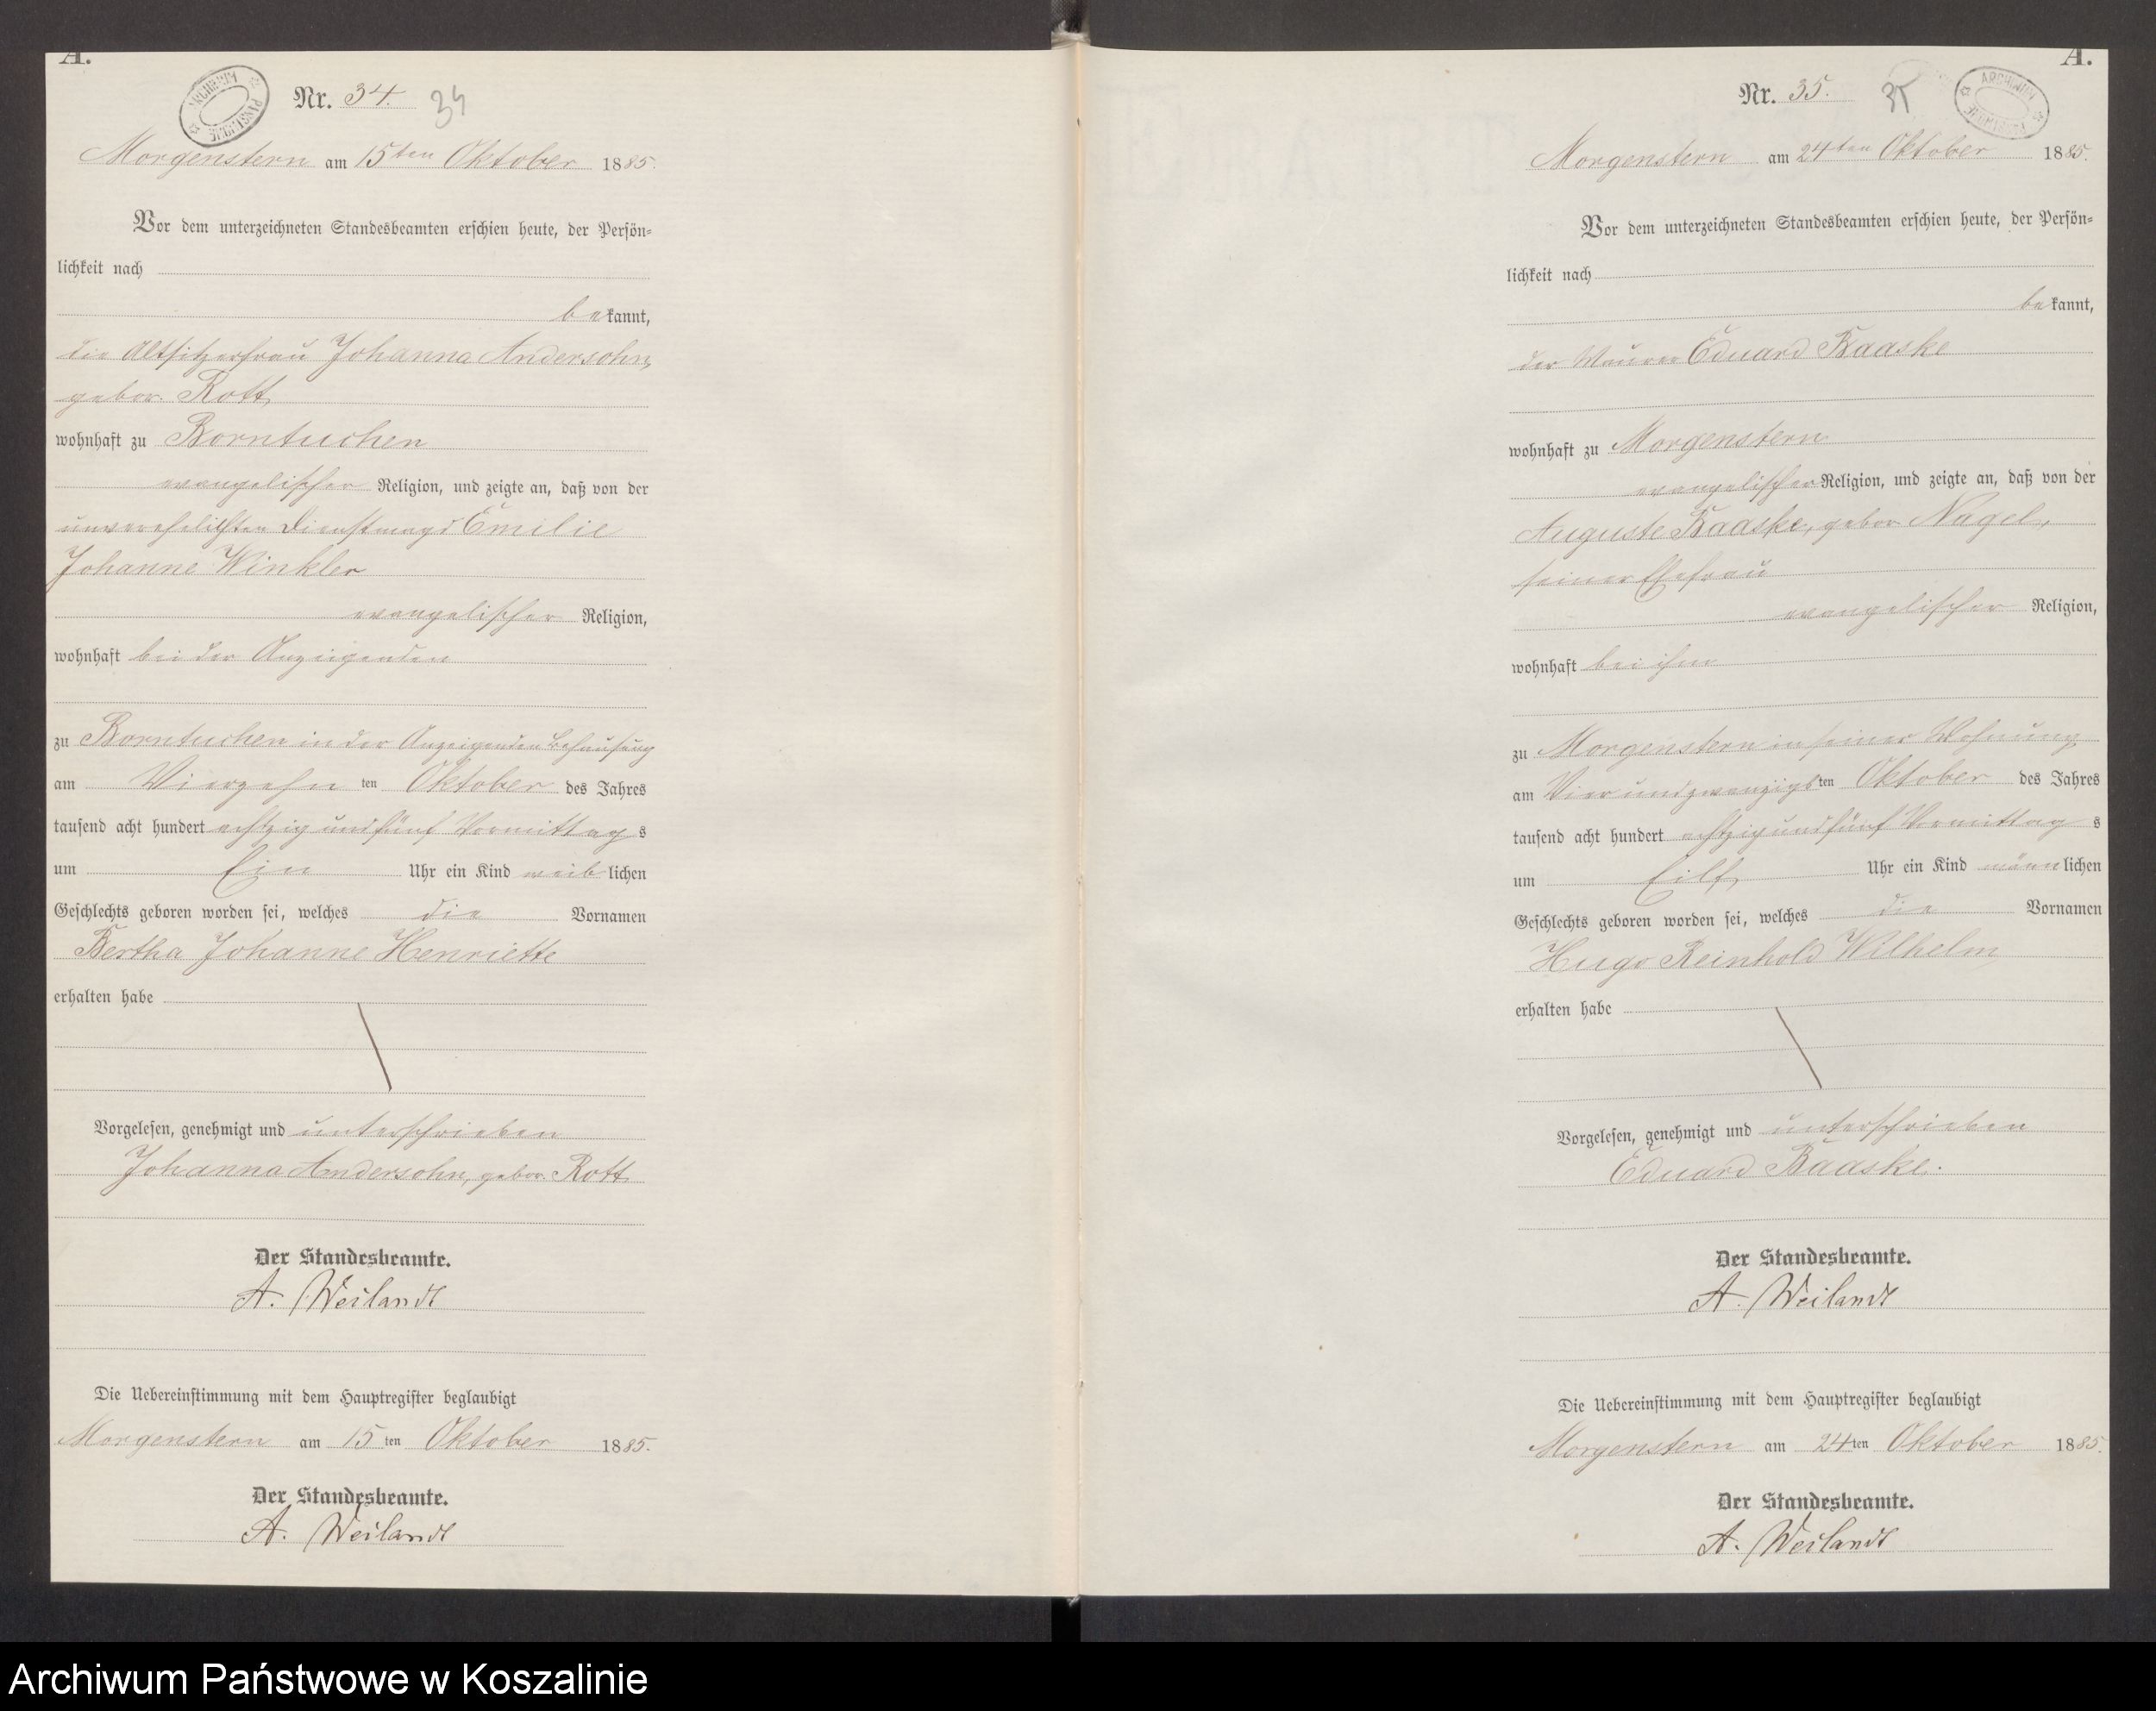 A.
ARCHIWUM PAŃSTWOWE
Nr. 34. 34
Morgenstern am 15ten Oktober 1885.
Vor dem unterzeichneten Standesbeamten erschien heute, der Persön-
lichkeit nach
bekannt,
die Altsitzerfrau Johanna Andersohn,
gebor. Rott,
wohnhaft zu Borntuchen
evangelischer Religion, und zeigte an, daß von der
unverehelichten Dienstmagd Emilie
Johanne Winkler
evangelischer Religion,
wohnhaft bei der Anzeigenden
zu Borntuchen in der Anzeigenden Behausung
am Vierzehnten Oktober des Jahres
tausend acht hundert achtzig und fünf Vormittags
um Ein Uhr ein Kind weiblichen
Geschlechts geboren worden sei, welches die Vornamen
Bertha Johanne Henriette
erhalten habe
Vorgelesen, genehmigt und unterschrieben
Johanna Andersohn, gebor. Rott
Der Standesbeamte.
A. Weilandt
Die Uebereinstimmung mit dem Hauptregister beglaubigt
Morgenstern am 15ten Oktober 1885.
Der Standesbeamte.
A. Weilandt
A.
Nr. 35. 35
ARCHIWUM PAŃSTWOWE
Morgenstern am 24ten Oktober 1885.
Vor dem unterzeichneten Standesbeamten erschien heute, der Persön-
lichkeit nach
bekannt,
der Maurer Eduard Baaske
wohnhaft zu Morgenstern
evangelischer Religion, und zeigte an, daß von der
Auguste Baaske, gebor. Nagel,
seiner Ehefrau
evangelischer Religion,
wohnhaft bei ihm
zu Morgenstern in seiner Wohnung
am Vierundzwanzigsten Oktober des Jahres
tausend acht hundert achtzig und fünf Vormittags
um Eilf Uhr ein Kind männlichen
Geschlechts geboren worden sei, welches die Vornamen
Hugo Reinhold Wilhelm
erhalten habe
Vorgelesen, genehmigt und unterschrieben
Eduard Baaske.
Der Standesbeamte.
A. Weilandt
Die Uebereinstimmung mit dem Hauptregister beglaubigt
Morgenstern am 24ten Oktober 1885.
Der Standesbeamte.
A. Weilandt
Archiwum Państwowe w Koszalinie